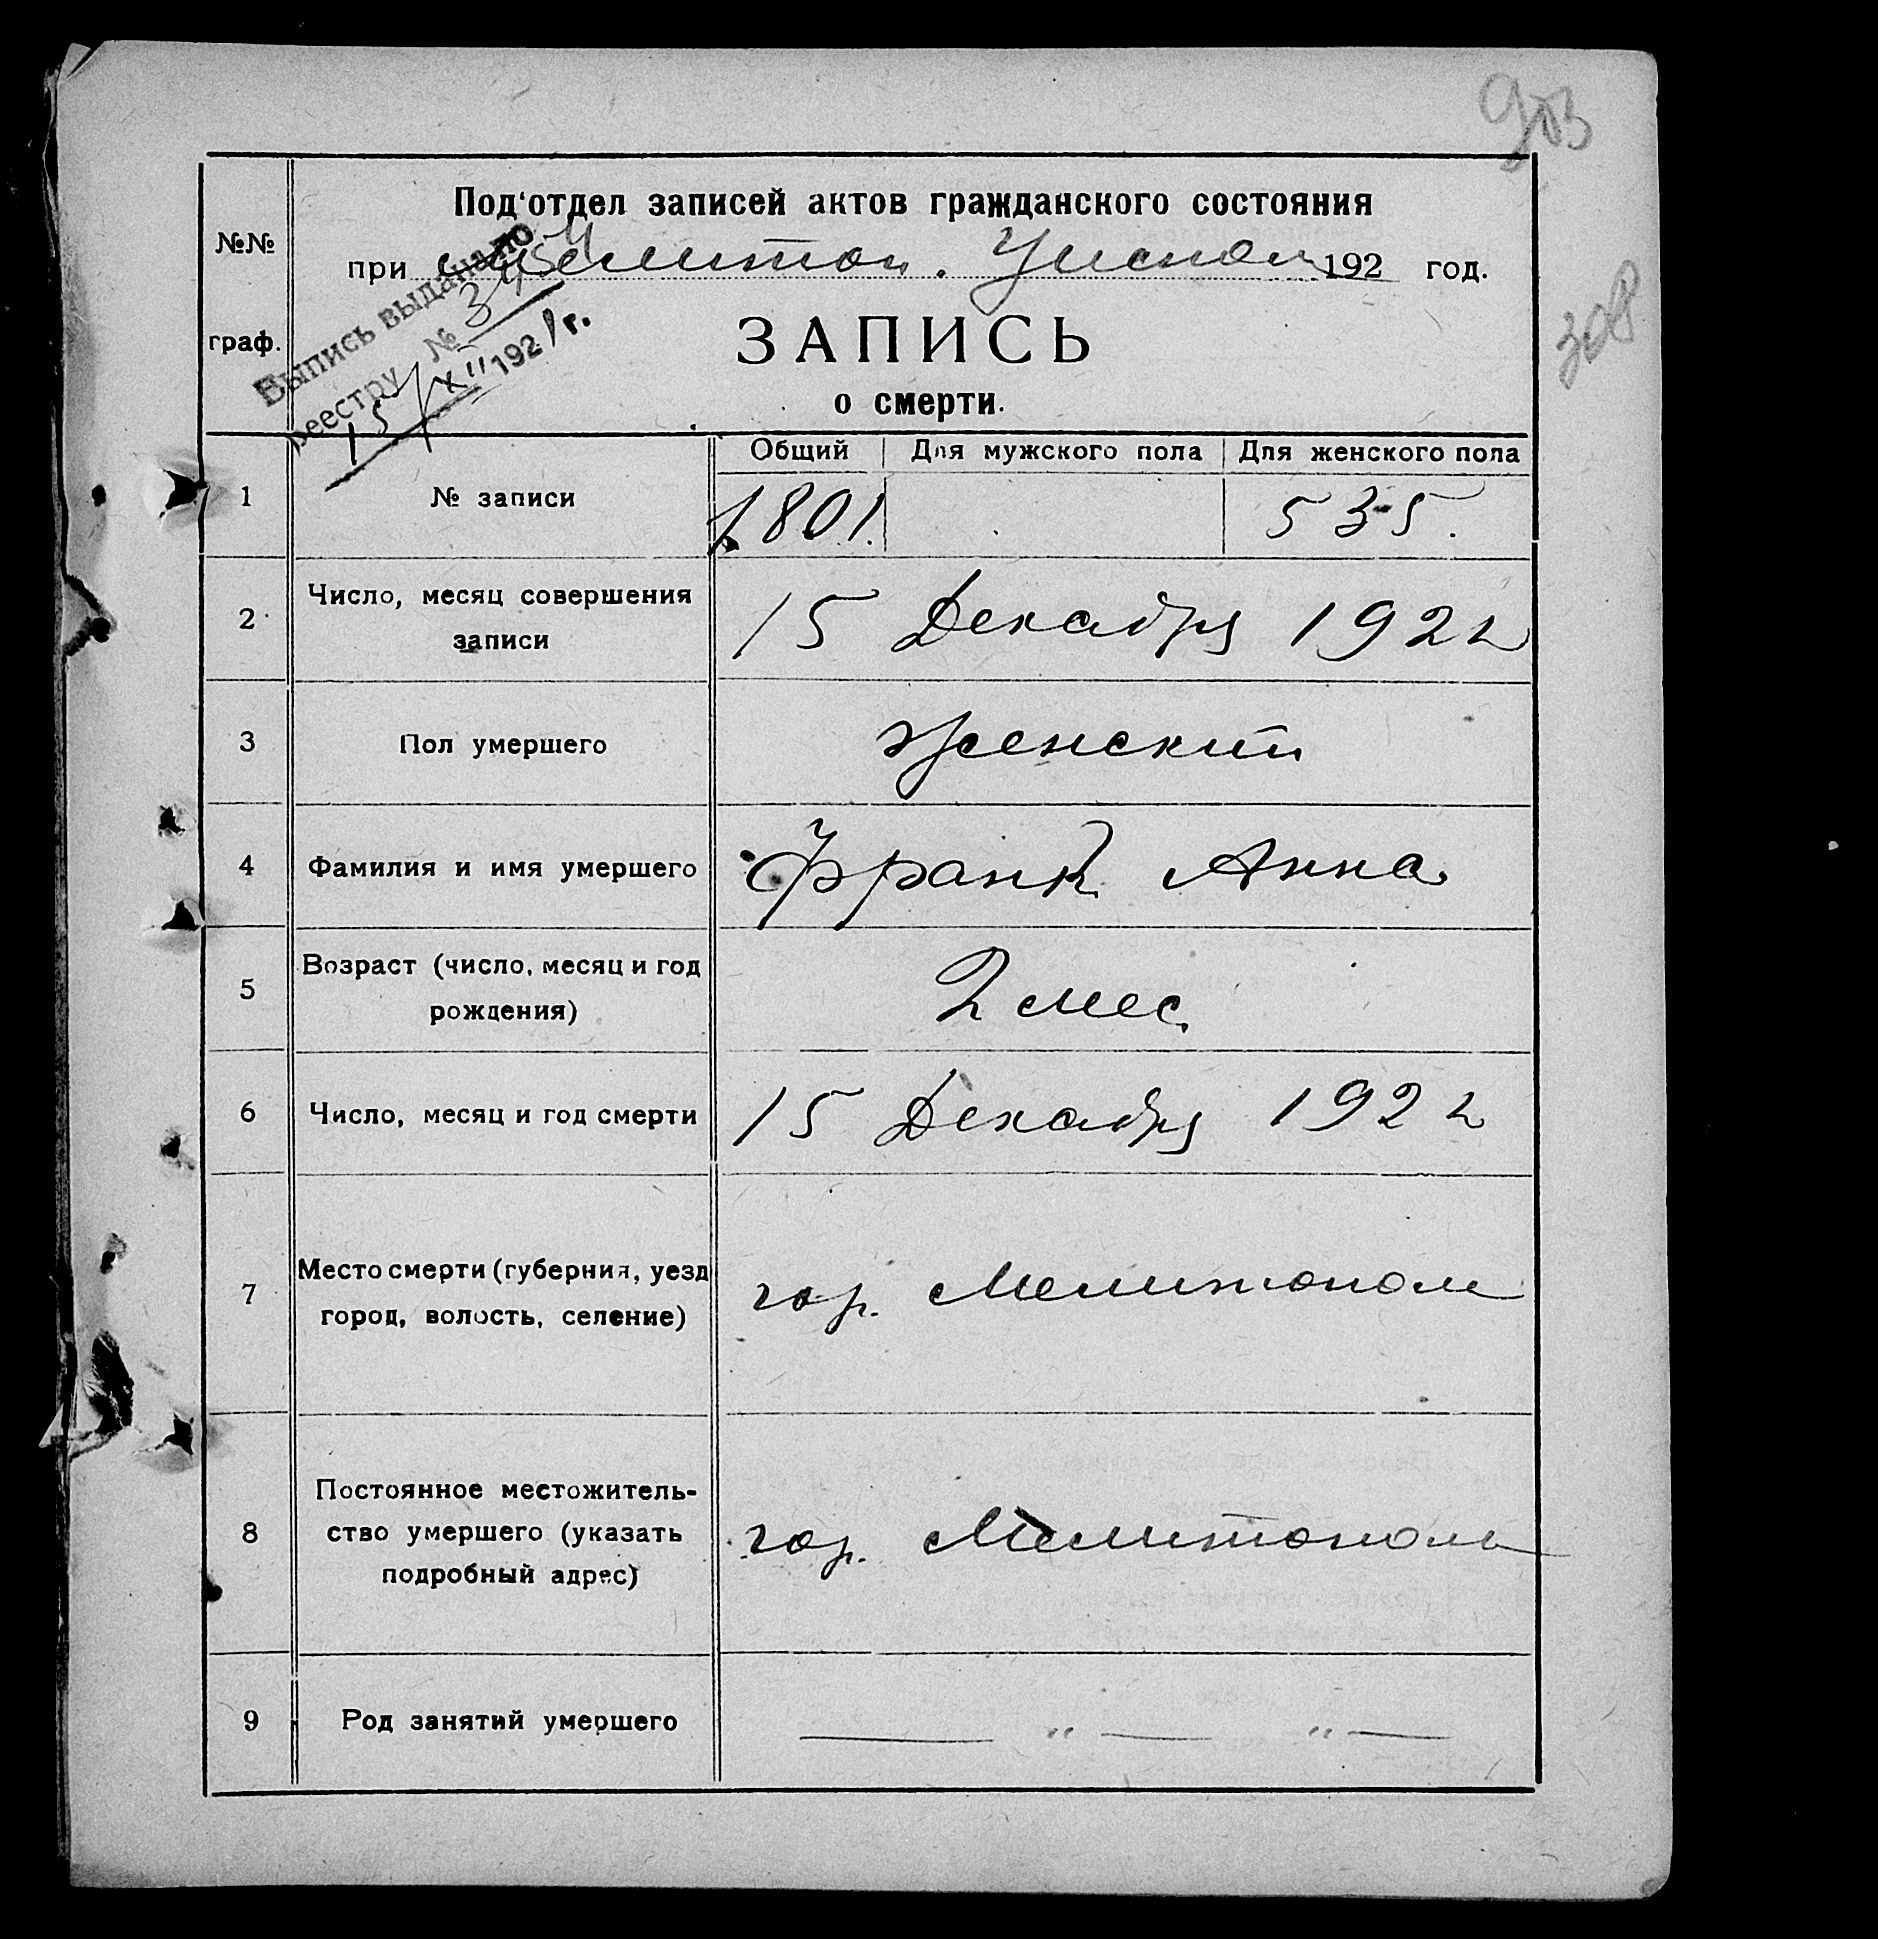 903
308
Под'отдел записей актов гражданского состояния
№№
при Мелитоп. Уисном 192 год.
Выпись выдана по
реестру № 3454
15/XII 1921 г.
граф.
ЗАПИСЬ
о смерти.
Общий Для мужского пола Для женского пола
1 № записи 1801. 535.
2 Число, месяц совершения
записи
15 Декабря 1922
3 Пол умершего Женский
4 Фамилия и имя умершего Франк Анна
5 Возраст (число, месяц и год
рождения)
2 мес.
6 Число, месяц и год смерти 15 Декабря 1922
7 Место смерти (губерния, уезд
город, волость, селение)
гор. Мелитополь
8 Постоянное местожитель-
ство умершего (указать
подробный адрес)
гор. Мелитополь
9 Род занятий умершего — „ — „ —